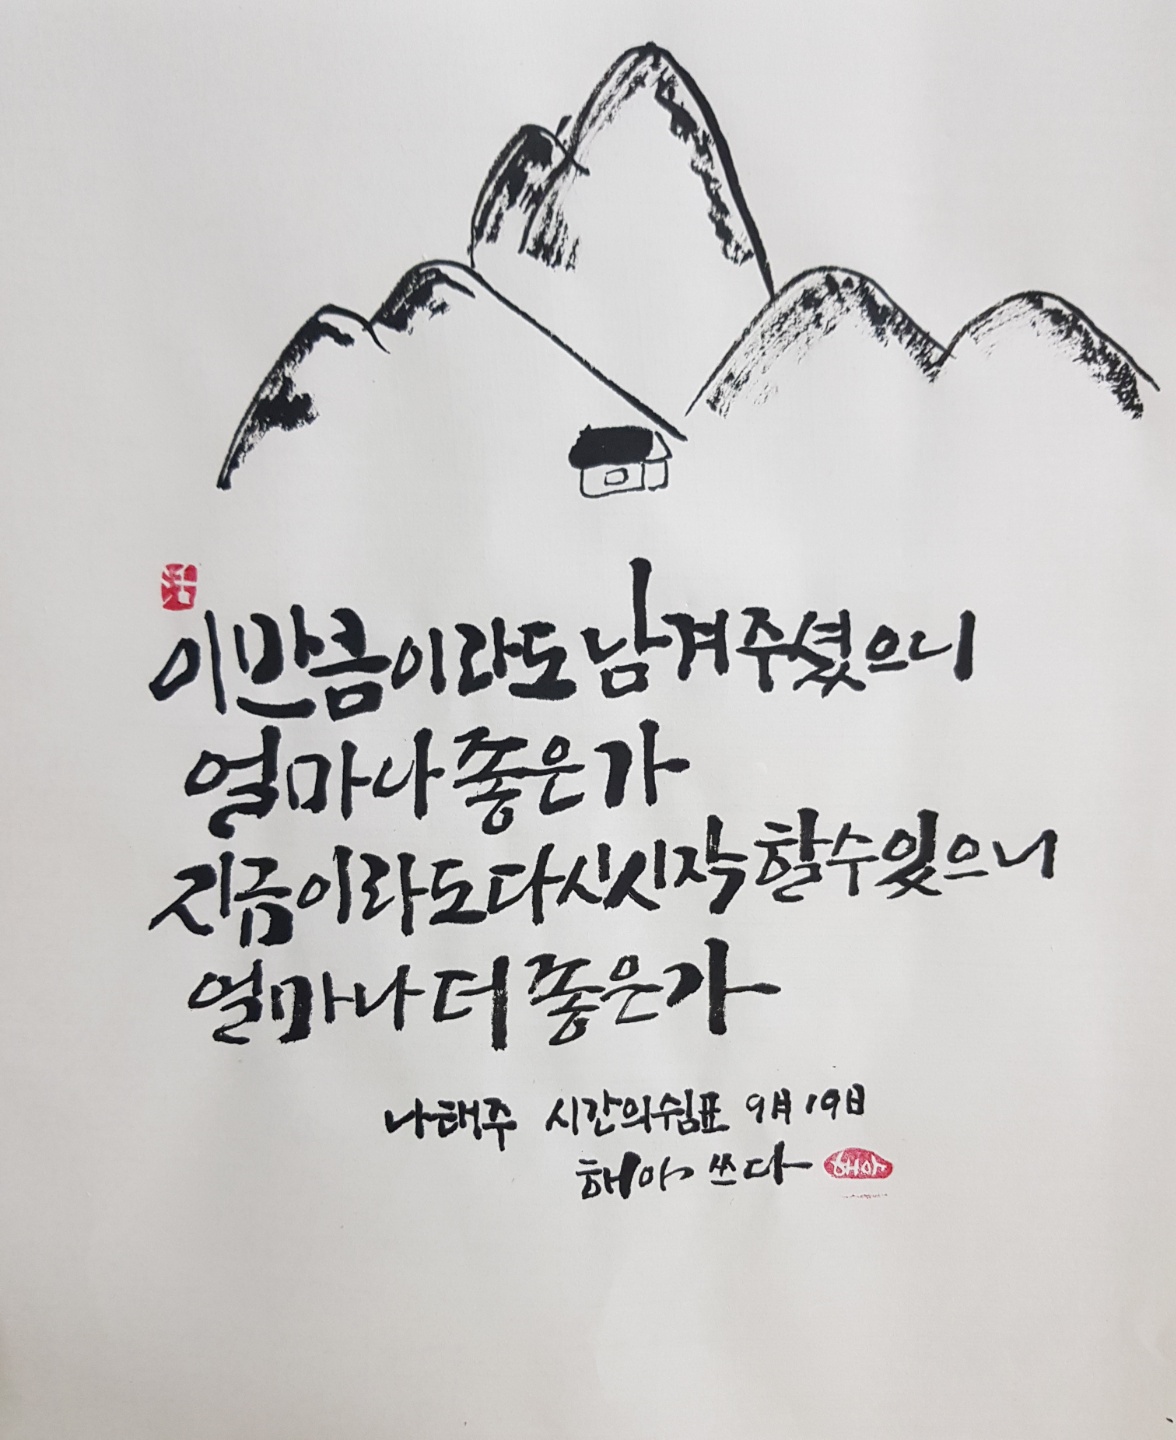 이만큼이라도 남겨주셨으니
얼마나 좋은가
지금이라도 다시 시작할 수 있으니
얼마나 더 좋은가
나태주 시간의쉼표 9월 19일
해아 쓰다 해아